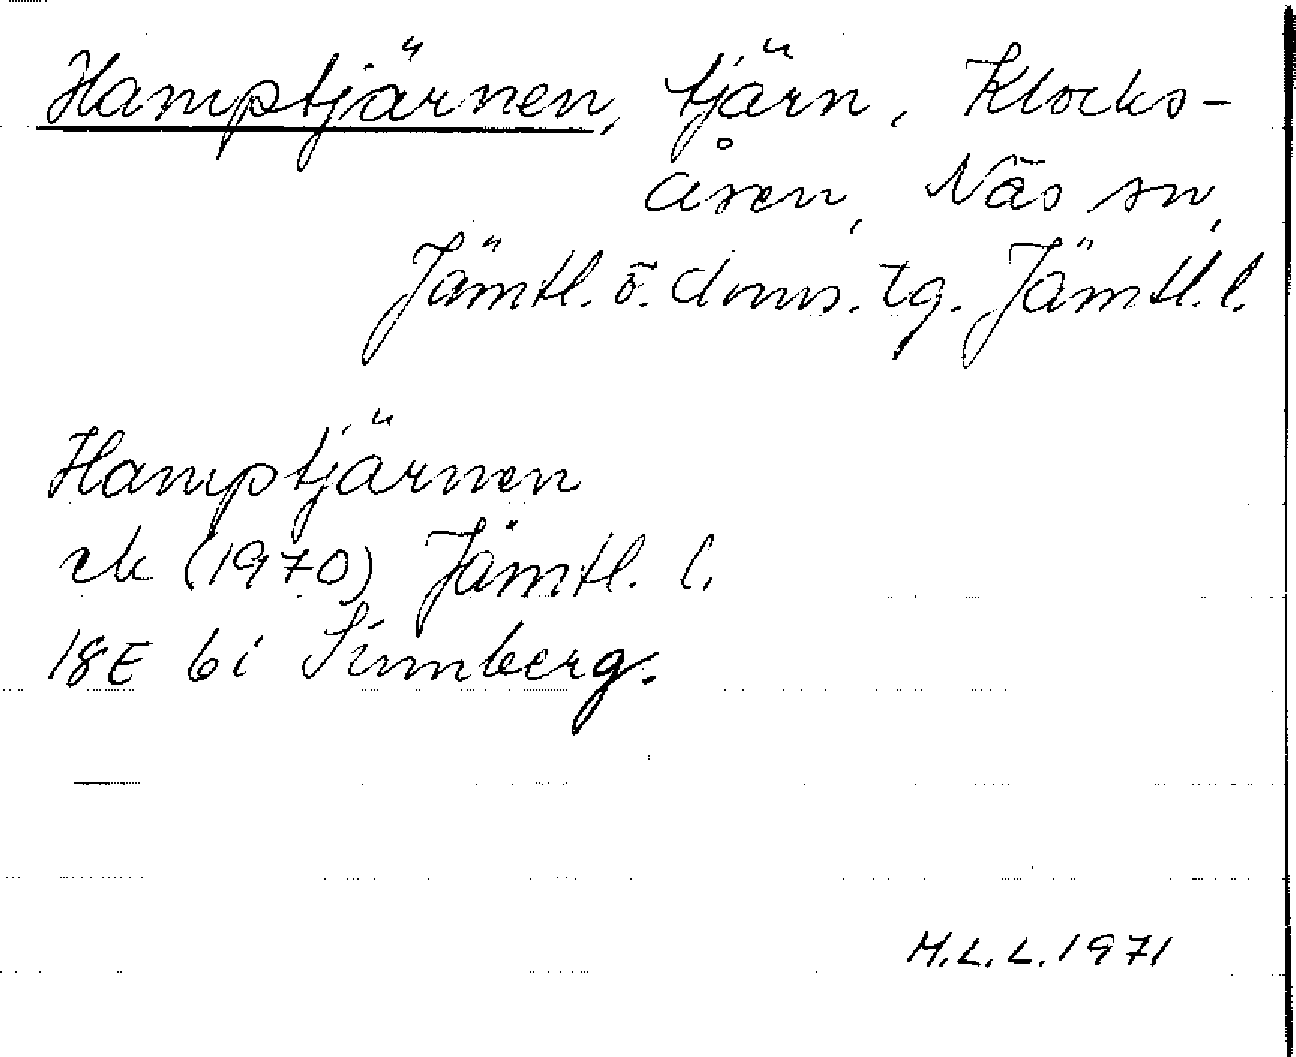 Hamptjärnen, tjärn, Klocks-
åsen, Näs sn,
Jämtl. ö. doms. tg. Jämtl. l.
Hamptjärnen
ek (1970) Jämtl. l.
18E 6i Sunnberg.
M.L.L. 1971